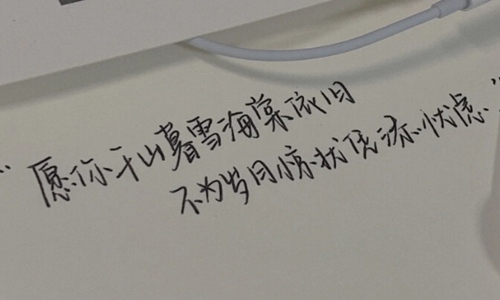 “愿你千山暮雪海棠依旧
不为岁月惊扰凭添忧虑”